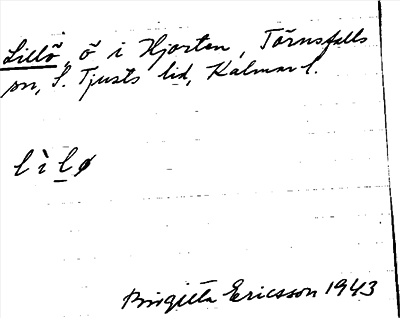 Lillö, ö i Hjorten, Törnsfalls
sn, S. Tjusts hd, Kalmar l.
lìl̲ø
Birgitta Ericsson 1943